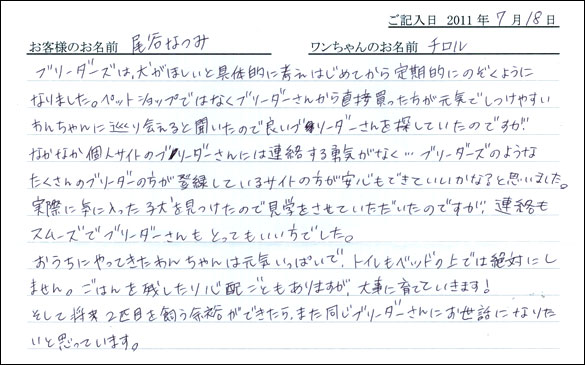 ご記入日 2011年7月18日
お客様のお名前 尾谷なつみ ワンちゃんのお名前 チロル
ブリーダーズは、犬がほしいと具体的に考えはじめてから定期的にのぞくように
なりました。ペットショップではなくブリーダーさんから直接買った方が元気でしつけやすい
わんちゃんに巡り会えると聞いたので良いブリーダーさんを探していたのですが、
なかなか個人サイトのブリーダーさんには連絡する勇気がなく…ブリーダーズのような
たくさんのブリーダーの方が登録しているサイトの方が安心もできていいかなぁと思いました。
実際に気に入った子犬を見つけたので見学をさせていただいたのですが、連絡も
スムーズでブリーダーさんもとってもいい方でした。
おうちにやってきたわんちゃんは元気いっぱいで、トイレもベッドの上では絶対にし
ません。ごはんを残したり心配ごともありますが、大事に育てていきます!
そして将来2匹目を飼う余裕ができたら、また同じブリーダーさんにお世話になりた
いと思っています。